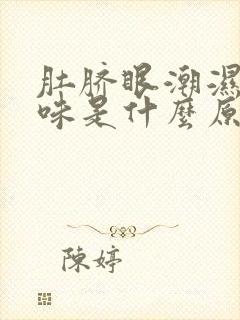 肚脐眼潮濕
味是什麼原
陳婷